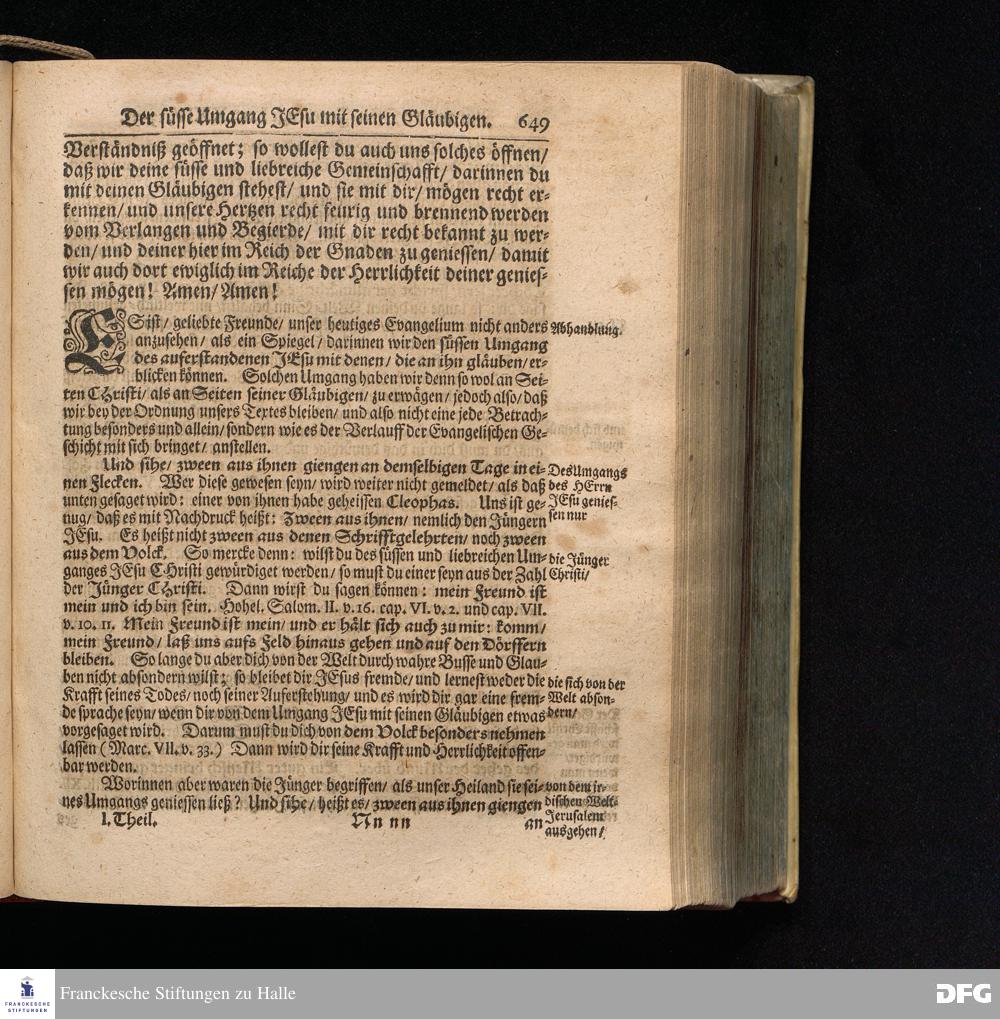 Der süsse Umgang JEsu mit seinen Gläubigen. 649
Verständniß geöffnet; so wollest du auch uns solches öffnen/
daß wir deine süsse und liebreiche Gemeinschafft/ darinnen du
mit deinen Gläubigen stehest/ und sie mit dir/ mögen recht er-
kennen/ und unsere Hertzen recht feurig und brennend werden
vom Verlangen und Begierde/ mit dir recht bekannt zu wer-
den/ und deiner hier im Reich der Gnaden zu geniessen/ damit
wir auch dort ewiglich im Reiche der Herrlichkeit deiner genies-
sen mögen! Amen/ Amen!
ES ist/ geliebte Freunde/ unser heutiges Evangelium nicht anders
Abhandlung.
anzusehen/ als ein Spiegel/ darinnen wir den süssen Umgang
des auferstandenen JEsu mit denen/ die an ihn gläuben/ er-
blicken können. Solchen Umgang haben wir denn so wol an Sei-
ten CHristi/ als an Seiten seiner Gläubigen/ zu erwägen/ jedoch also/ daß
wir bey der Ordnung unsers Textes bleiben/ und also nicht eine jede Betrach-
tung besonders und allein/ sondern wie es der Verlauff der Evangelischen Ge-
schicht mit sich bringet/ anstellen.
Und sihe/ zween aus ihnen giengen an demselbigen Tage in ei-
nen Flecken. Wer diese gewesen seyn/ wird weiter nicht gemeldet/ als daß
unten gesaget wird: einer von ihnen habe geheissen Cleophas. Uns ist ge-
nug/ daß es mit Nachdruck heißt: Zween aus ihnen/ nemlich den Jüngern
JEsu. Es heißt nicht zween aus denen Schrifftgelehrten/ noch zween
aus dem Volck. So mercke denn: wilst du des süssen und liebreichen Um-
ganges JEsu CHristi gewürdiget werden/ so must du einer seyn aus der Zahl
der Jünger CHristi. Dann wirst du sagen können: mein Freund ist
mein und ich bin sein. Hohel. Salom. II. v. 16. cap. VI. v. 2. und cap. VII.
v. 10. 11. Mein Freund ist mein/ und er hält sich auch zu mir: komm/
mein Freund/ laß uns aufs Feld hinaus gehen und auf den Dörffern
bleiben. So lange du aber dich von der Welt durch wahre Busse und Glau-
ben nicht absondern wilst; so bleibet dir JEsus fremde/ und lernest weder die
Krafft seines Todes/ noch seiner Auferstehung/ und es wird dir gar eine frem-
de sprache seyn/ wenn dir von dem Umgang JEsu mit seinen Gläubigen etwas
vorgesaget wird. Darum must du dich von dem Volck besonders nehmen
lassen (Marc. VII. v. 33.) Dann wird dir seine Krafft und Herrlichkeit offen-
bar werden.
Worinnen aber waren die Jünger begriffen/ als unser Heiland sie sei-
nes Umgangs geniessen ließ? Und sihe/ heißt es/ zween aus ihnen giengen
I. Theil. Nn nn an
Des Umgangs
des HErrn
JEsu genies-
sen nur
die Jünger
Christi/
die sich von der
Welt abson-
dern/
von dem ir-
dischen Welt-
Jerusalem
ausgehen/
Franckesche Stiftungen zu Halle
FRANCKESCHE
STIFTUNGEN
DFG